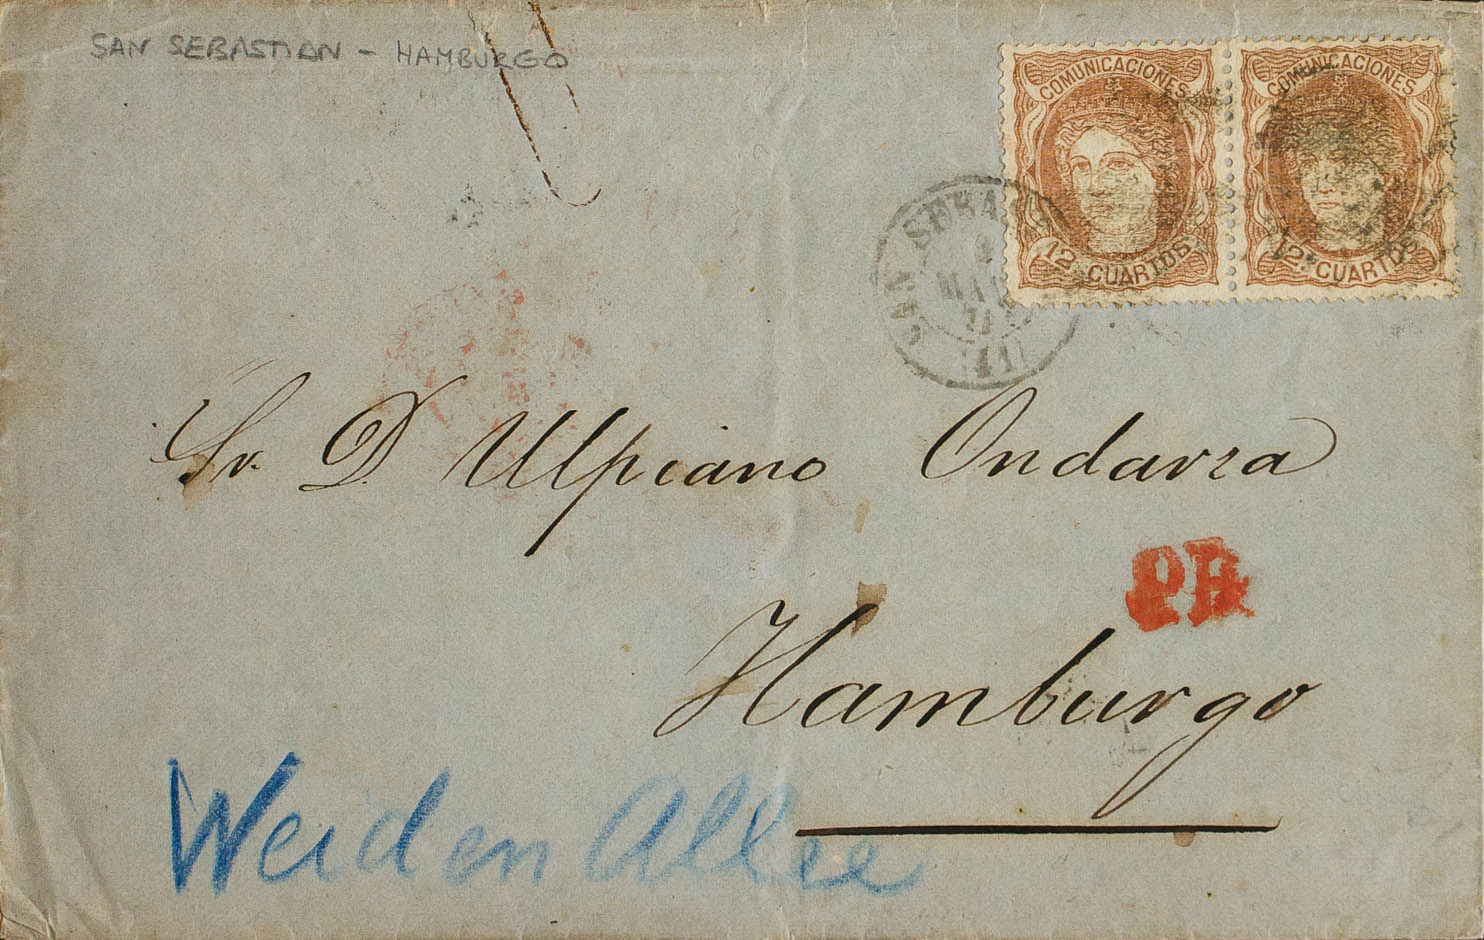 SAN SEBASTIAN - HAMBURGO
COMUNICACIONES
12 CUARTOS
COMUNICACIONES
12 CUARTOS
SAN SEBA
MA
71
(41)
Sr. D. Ulpiano Ondarza
PD
Hamburgo
Weiden Allee